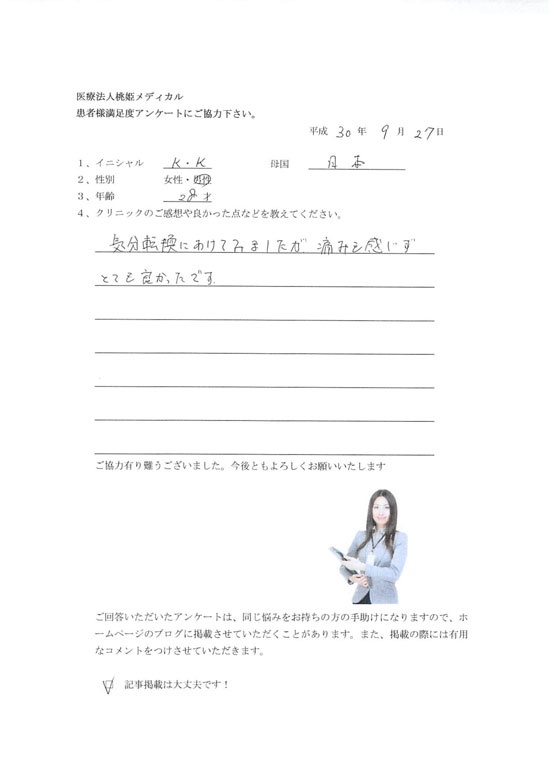 医療法人桃姫メディカル
患者様満足度アンケートにご協力下さい。
平成 30 年 9 月 27 日
1、イニシャル K・K 母国 日本
2、性別 女性・男性
3、年齢 28 才
4、クリニックのご感想や良かった点などを教えてください。
気分転換にあけてみましたが 痛みも感じず
とても良かったです。
ご協力有り難うございました。今後ともよろしくお願いいたします
ご回答いただいたアンケートは、同じ悩みをお持ちの方の手助けになりますので、ホ
ームページのブログに掲載させていただくことがあります。また、掲載の際には有用
なコメントをつけさせていただきます。
記事掲載は大丈夫です！